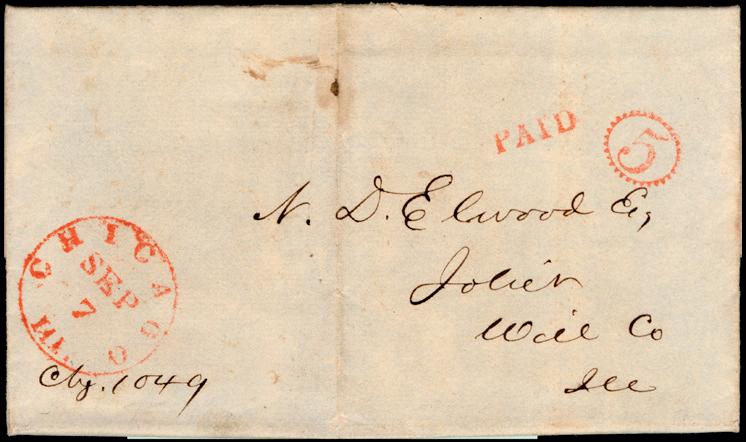 PAID 5
N. D. Elwood Esq
CHICAGO ILL.
SEP
7
Joliet
Will Co
Ill
Chg. 1049